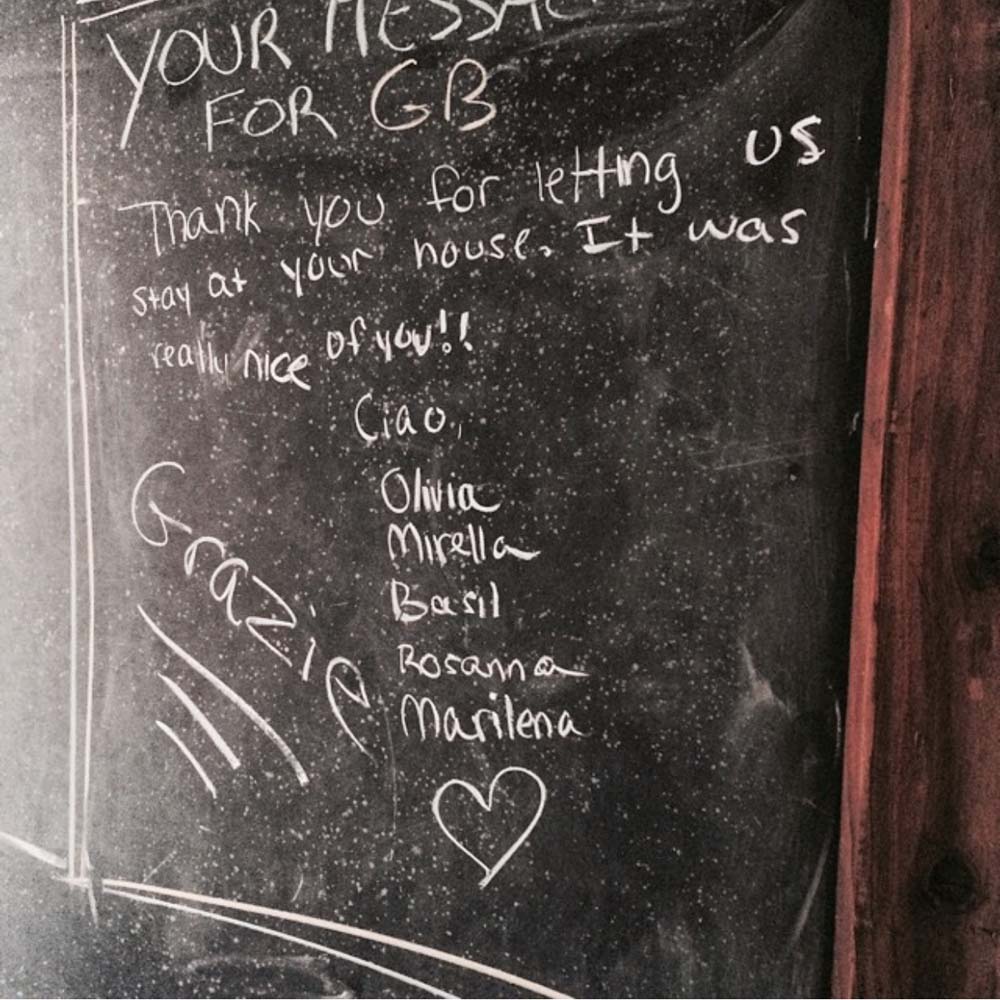 YOUR MESSAG
FOR GB
Thank you for letting us
stay at your house. It was
really nice of you!!
Ciao,
Olivia
Mirella
Basil
Rosanna
Marilena
Grazie